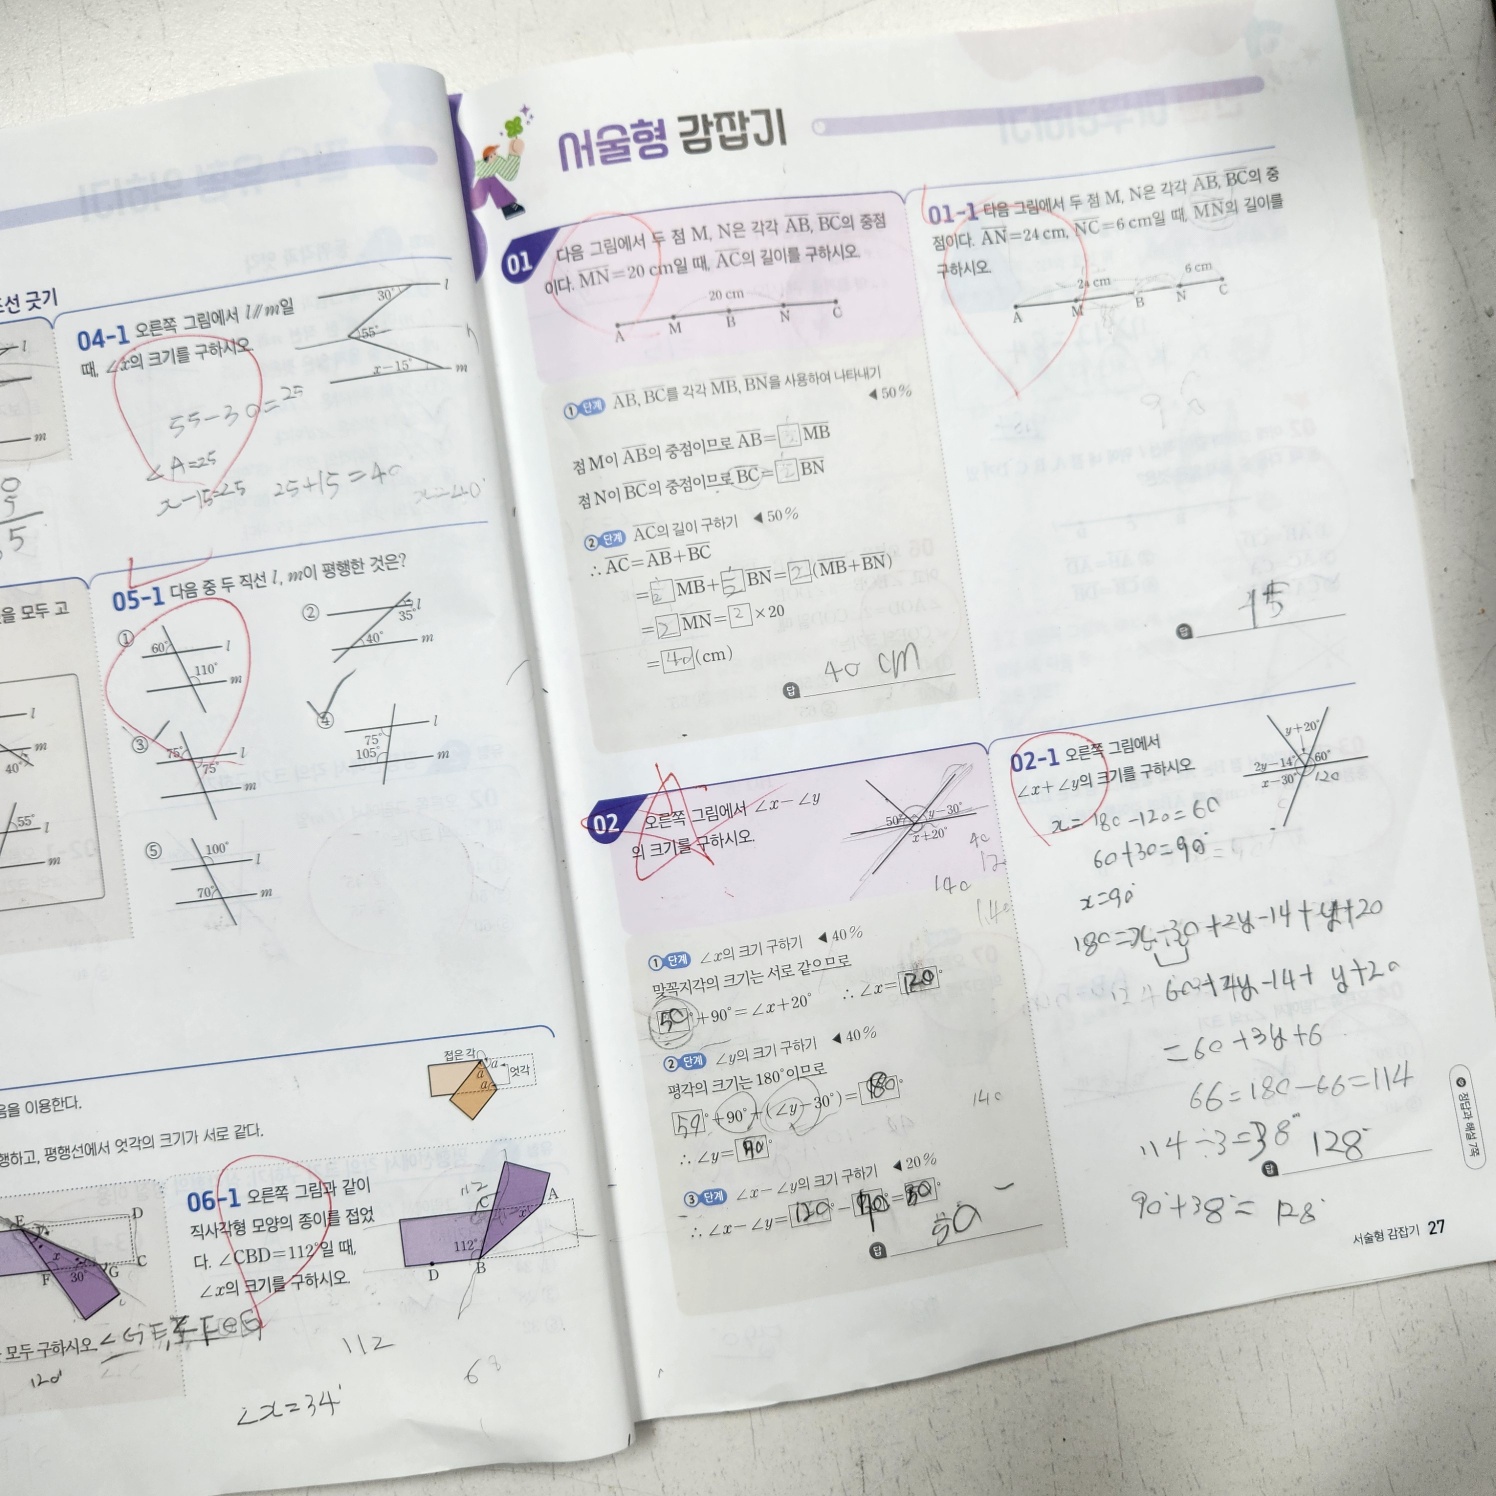 조선 긋기
04-1 오른쪽 그림에서 l∥m일
때, ∠x의 크기를 구하시오.
30°
l
55°
x−15°
m
55−30=25
∠A=25
x−15=25 25+15=40 x=40°
05-1 다음 중 두 직선 l, m이 평행한 것은?
①
60°
l
110°
m
②
35°
l
40°
m
③
75°
l
75°
m
④
75°
l
105°
m
⑤
100°
l
70°
m
을 모두 고
l
m
40°
55°
l
m
음을 이용한다.
접은 각
엇각
행하고, 평행선에서 엇각의 크기가 서로 같다.
E
D
x
C
F
30°
G
모두 구하시오.
120°
06-1 오른쪽 그림과 같이
직사각형 모양의 종이를 접었
다. ∠CBD=112°일 때,
∠x의 크기를 구하시오.
112
C
A
x
112°
D
B
112
68
∠x=34°
서술형 감잡기
01 다음 그림에서 두 점 M, N은 각각 AB, BC의 중점
이다. MN=20 cm일 때, AC의 길이를 구하시오.
20 cm
A M B N C
①단계 AB, BC를 각각 MB, BN을 사용하여 나타내기
◀50%
점 M이 AB의 중점이므로 AB=2MB
점 N이 BC의 중점이므로 BC=2BN
②단계 AC의 길이 구하기 ◀50%
∴ AC=AB+BC
=2MB+2BN=2(MB+BN)
=2MN=2×20
=40(cm)
답 40 cm
01-1 다음 그림에서 두 점 M, N은 각각 AB, BC의 중
점이다. AN=24 cm, NC=6 cm일 때, MN의 길이를
구하시오.
24 cm
6 cm
A M B N C
답 15
02 오른쪽 그림에서 ∠x−∠y
의 크기를 구하시오.
50°
y−30°
x+20°
40
140
①단계 ∠x의 크기 구하기 ◀40%
맞꼭지각의 크기는 서로 같으므로
50°+90°=∠x+20° ∴ ∠x=120°
②단계 ∠y의 크기 구하기 ◀40%
평각의 크기는 180°이므로
50°+90°+(∠y−30°)=180°
∴ ∠y=70°
140
③단계 ∠x−∠y의 크기 구하기 ◀20%
∴ ∠x−∠y=120°−70°=50°
답 50
02-1 오른쪽 그림에서
∠x+∠y의 크기를 구하시오.
y+20°
2y−14°
60°
x−30°
120
x=180−120=60
60+30=90°
x=90°
180=x−30+2y−14+y+20
60+2y−14+y+20
=60+3y+6
66=180−66=114
114÷3=38°
답 128°
90°+38°=128°
정답과 해설 7쪽
서술형 감잡기 27